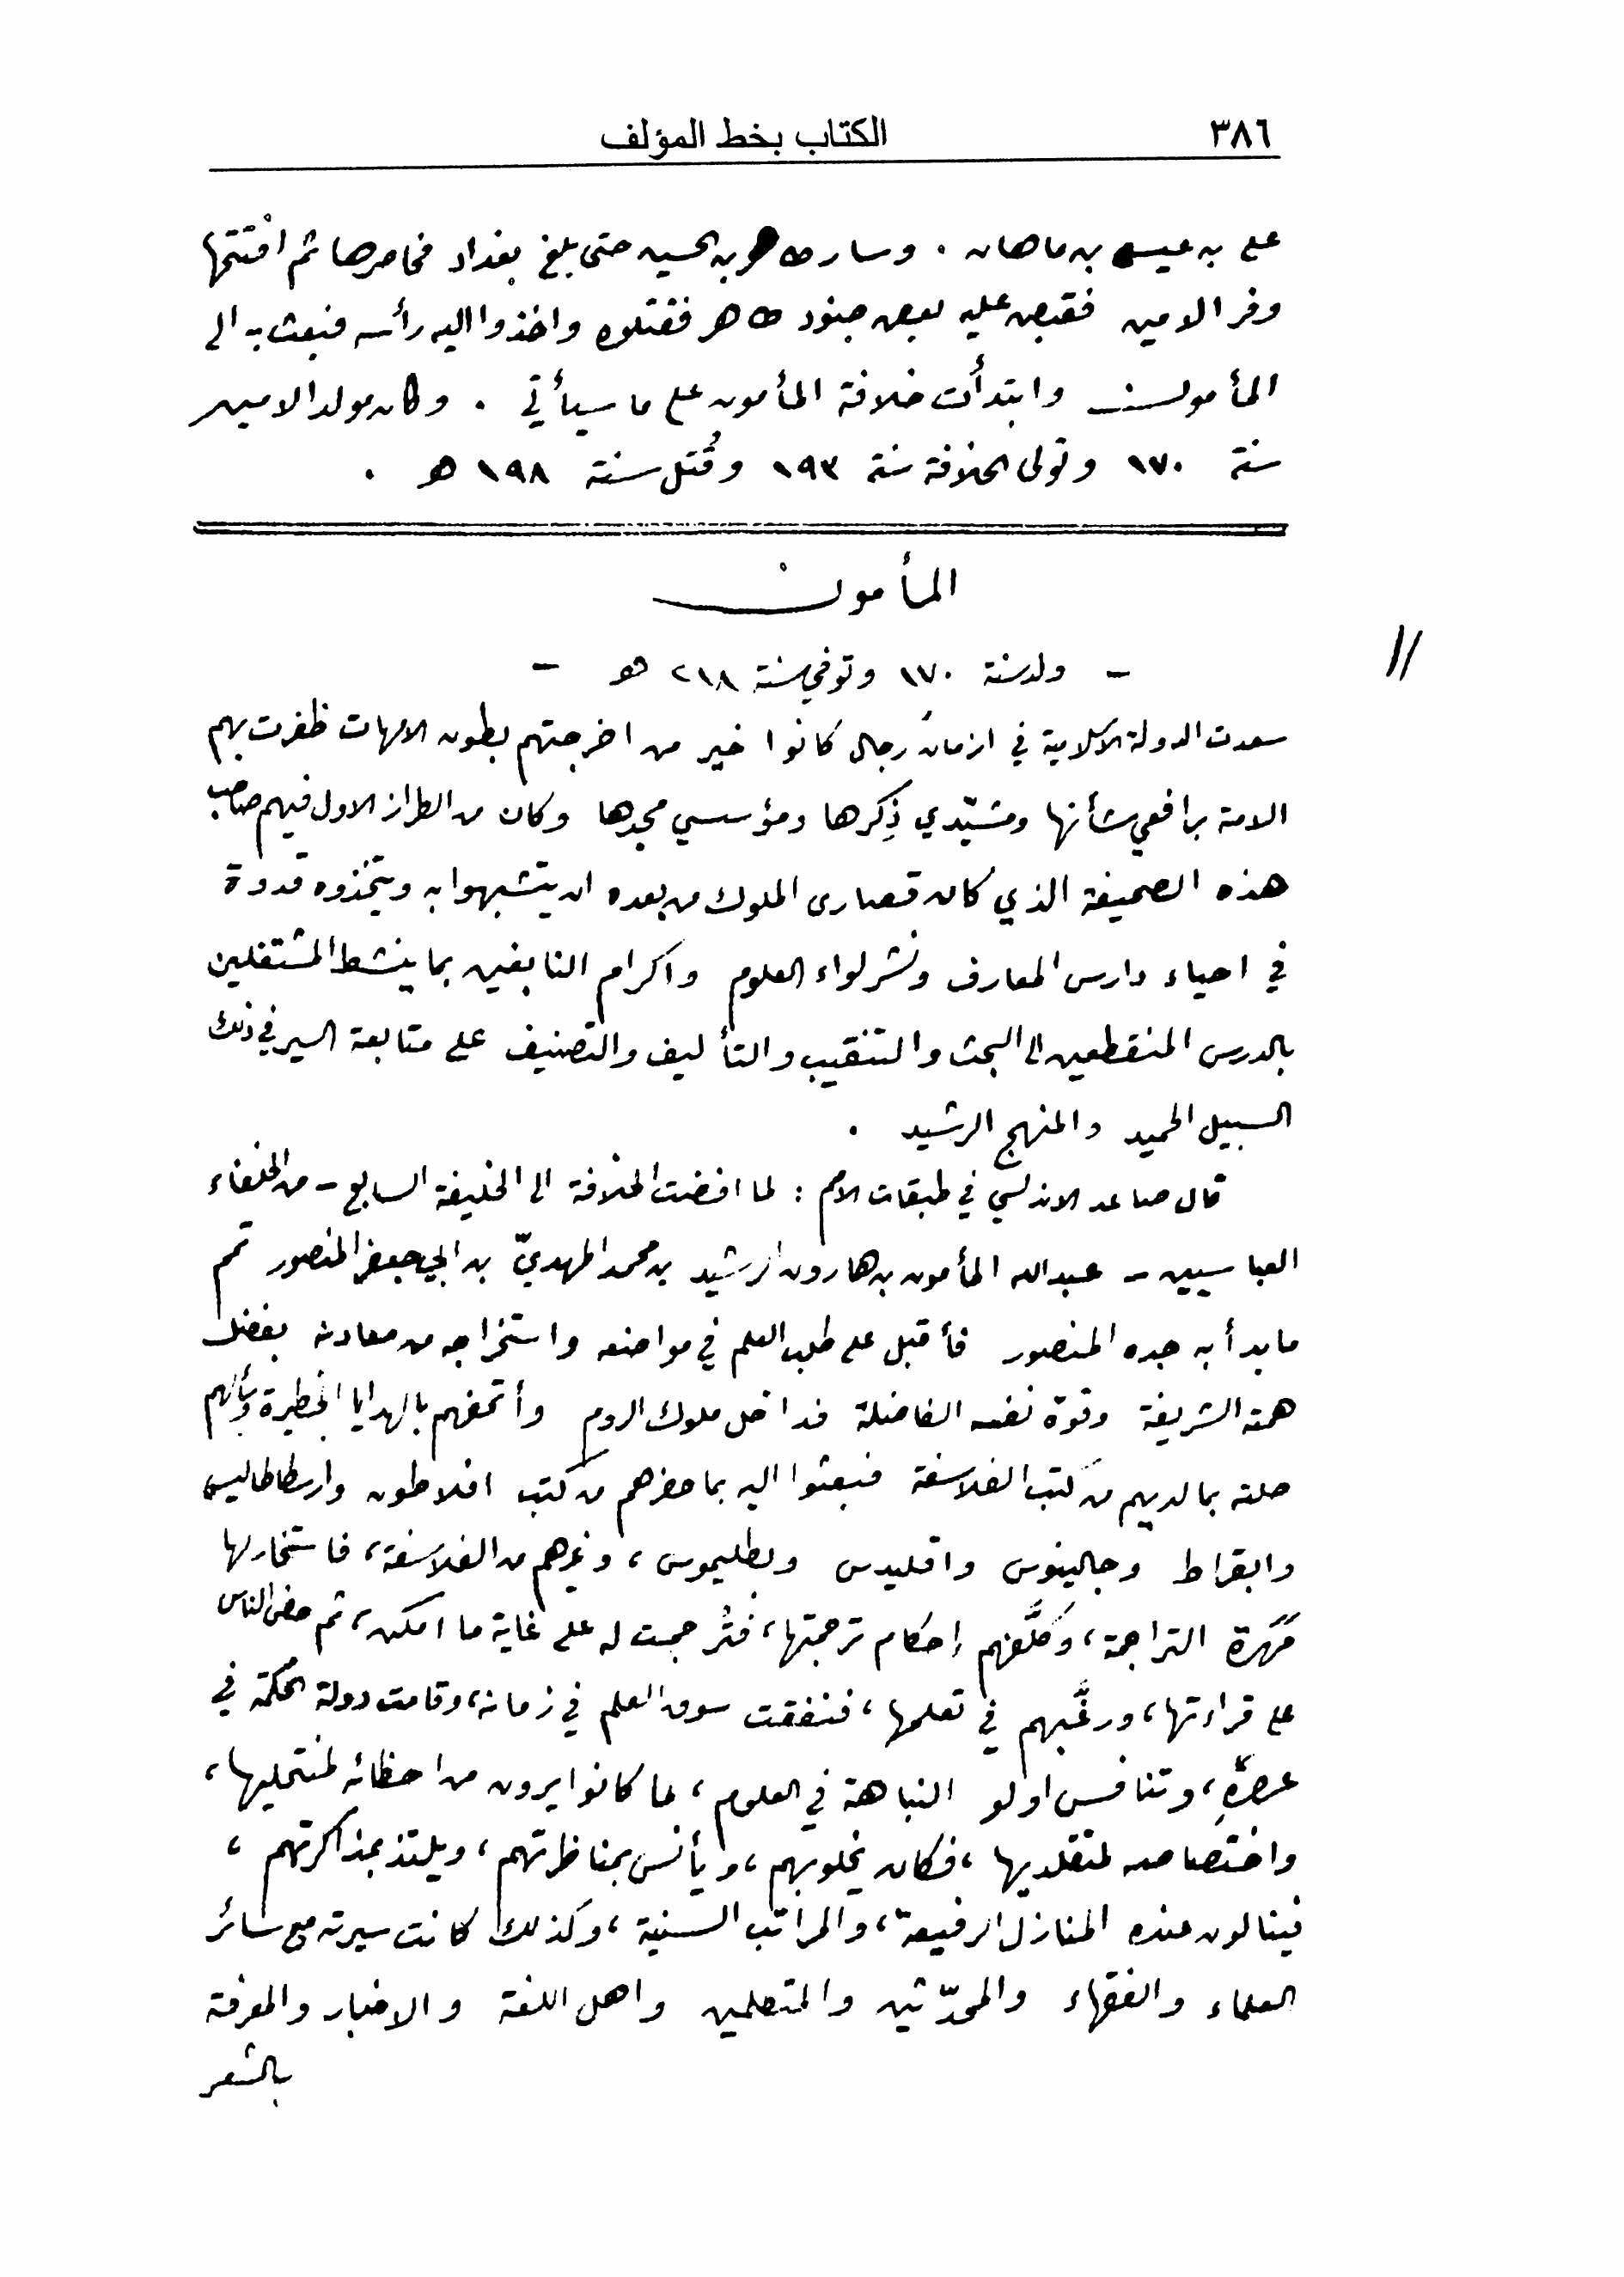 ٣٨٦ الكتاب بخط المؤلف
علي بن عيسى بن ماهان . وسار طاهر بن الحسين حتى بلغ بغداد فحاصرها ثم افتتحها
وفر الامين فقبض عليه بعض جنود طاهر فقتلوه واخذوا اليه رأسه فبعث به الى
المأمون وابتدأت خلافة المأمون على ما سيأتي . وكان مولد الامين
سنة ١٧٠ وتولى الخلافة سنة ١٩٣ وقُتل سنة ١٩٨ هـ .
المأمون
- ولد سنة ١٧٠ وتوفي سنة ٢١٨ هـ -
//
سعدت الدولة الاسلامية في ازمان رجال كانوا خير من اخرجتهم بطون الامهات ظفرت بهم
الامة برافعي شأنها ومشيّدي ذِكرها ومؤسسي مجدها وكان من الطراز الاول فيهم صاحب
هذه الصحيفة الذي كان قصارى الملوك من بعده ان يتشبهوا به ويتخذوه قدوة
في احياء دارس المعارف ونشر لواء العلوم واكرام النابغين بما ينشط المشتغلين
بالدرس المنقطعين الى البحث والتنقيب والتأليف والتصنيف على متابعة السير في ذلك
السبيل الحميد والمنهج الرشيد .
قال صاعد الاندلسي في طبقات الامم : لما افضت الخلافة الى الخليفة السابع - من الخلفاء
العباسيين - عبدالله المأمون بن هارون الرشيد بن محمد المهديّ بن ابي جعفر المنصور تمم
ما بدأ به جده المنصور فأقبل على طلب العلم في مواضعه واستخراجه من معادنه بفضل
همته الشريفة وقوة نفسه الفاضلة فداخل ملوك الروم وأتحفهم بالهدايا الخطيرة وسألهم
صلته بما لديهم من كتب الفلاسفة فبعثوا اليه بما حضرهم من كتب افلاطون وارسطاطاليس
وابقراط وجالينوس واقليدس وبطليموس ، وغيرهم من الفلاسفة ، فاستخار لها
مَهَرة التراجمة ، وكلَّفهم إحكام ترجمتها ، فتُرجمت له على غاية ما امكن ، ثم حض الناس
على قراءتها ، ورغَّبهم في تعلمها ، فنفقت سوق العلم في زمانه ، وقامت دولة الحكمة في
عصرهِ ، وتنافس اولو النباهة في العلوم ، لما كانوا يرون من احظائه لمنتحليها ،
واختصاصه لمتقلديها ، فكان يخلو بهم ، ويأنس بمناظرتهم ، ويلتذ بمذاكرتهم ،
فينالون عنده المنازل الرفيعة ، والمراتب السنية ، وكذلك كانت سيرته مع سائر
العلماء والفقهاء والمحدّثين والمتكلمين واهل اللغة والاخبار والمعرفة
بالشعر